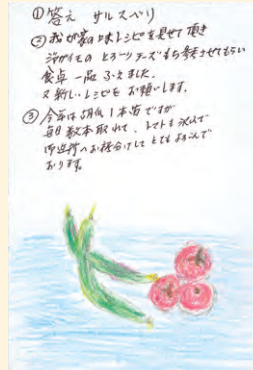 ① 答え サルスベリ
② 我が家の味レシピを見せて頂き
ジャガイモの とろーりチーズもち参考させてもらい
食卓一品 ふえました。
又新しいレシピを お願いします。
③ 今年は胡瓜 1本苗ですが
毎日数本取れて、トマトも 沢山で
御近所へお裾分けして とてもよろこんで
おります。